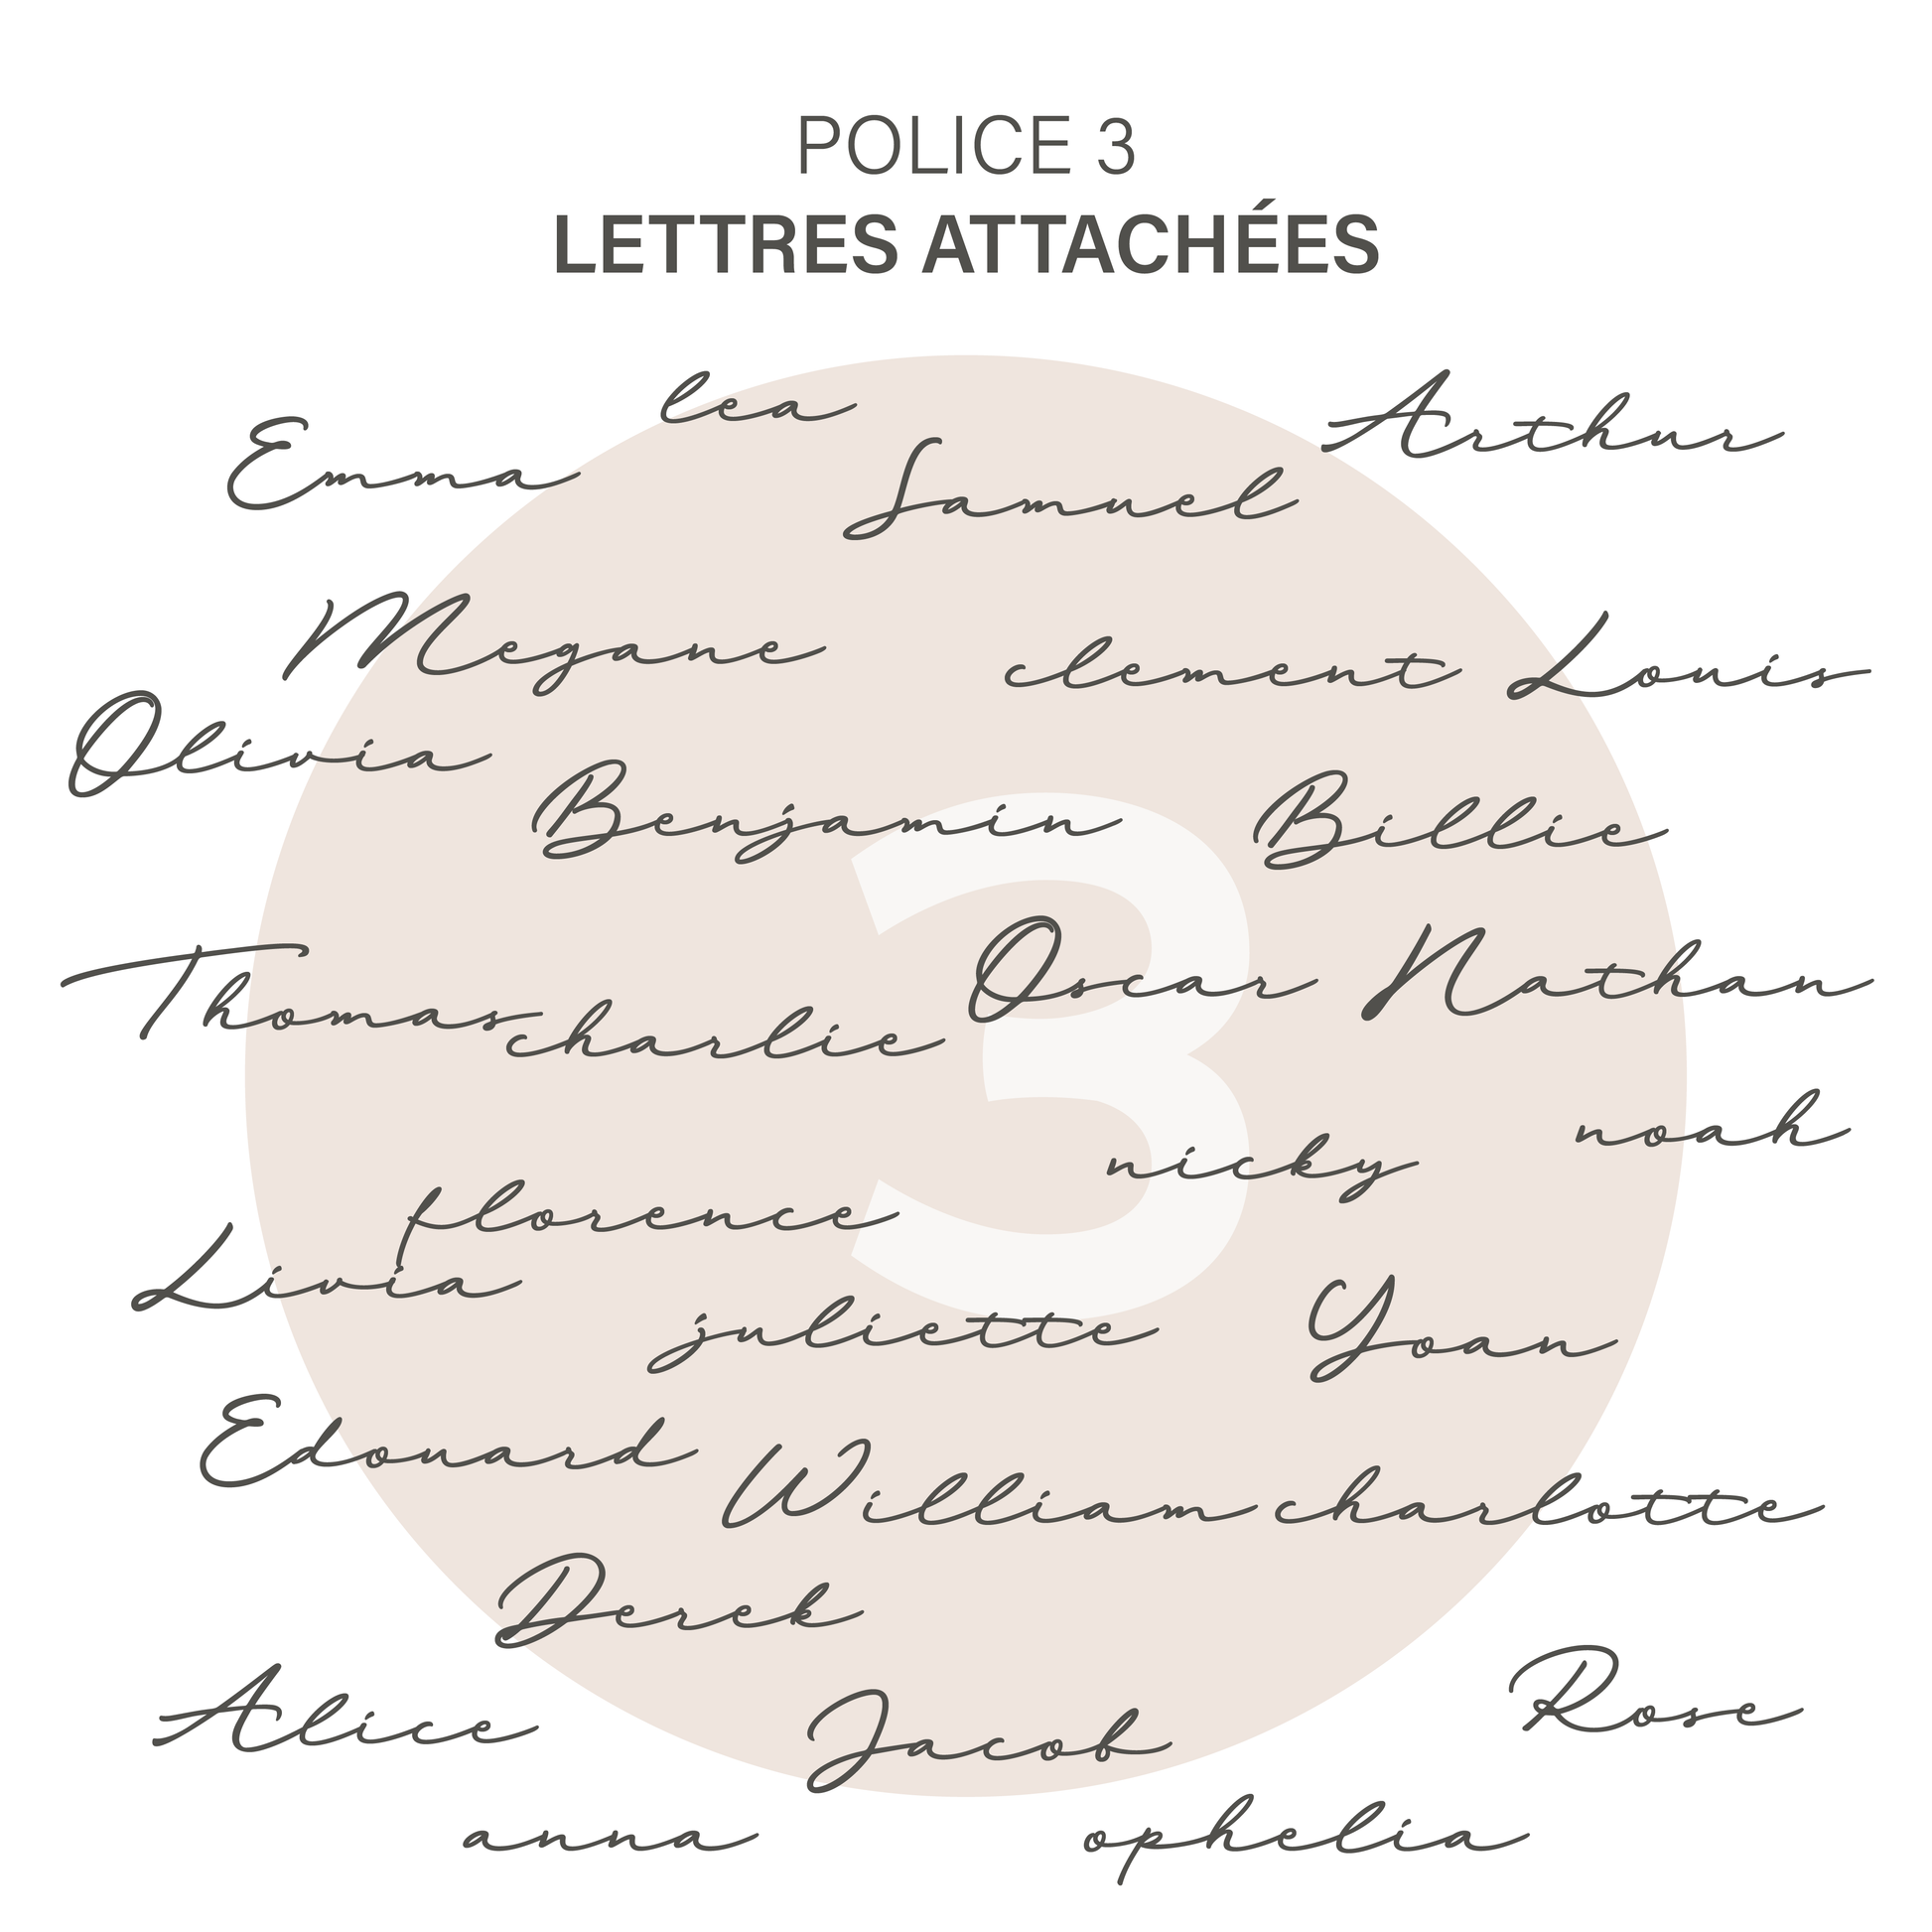 POLICE 3
LETTRES ATTACHÉES
lea
Emma
Arthur
Samuel
Megane
clement
Louis
Olivia
Benjamin
Billie
Thomas
charlie
Oscar
Nathan
noah
nicky
florence
Livia
juliette
Yoan
Edouard
William
charlotte
Derek
Alice
Jacob
Rose
anna
ophelia
3